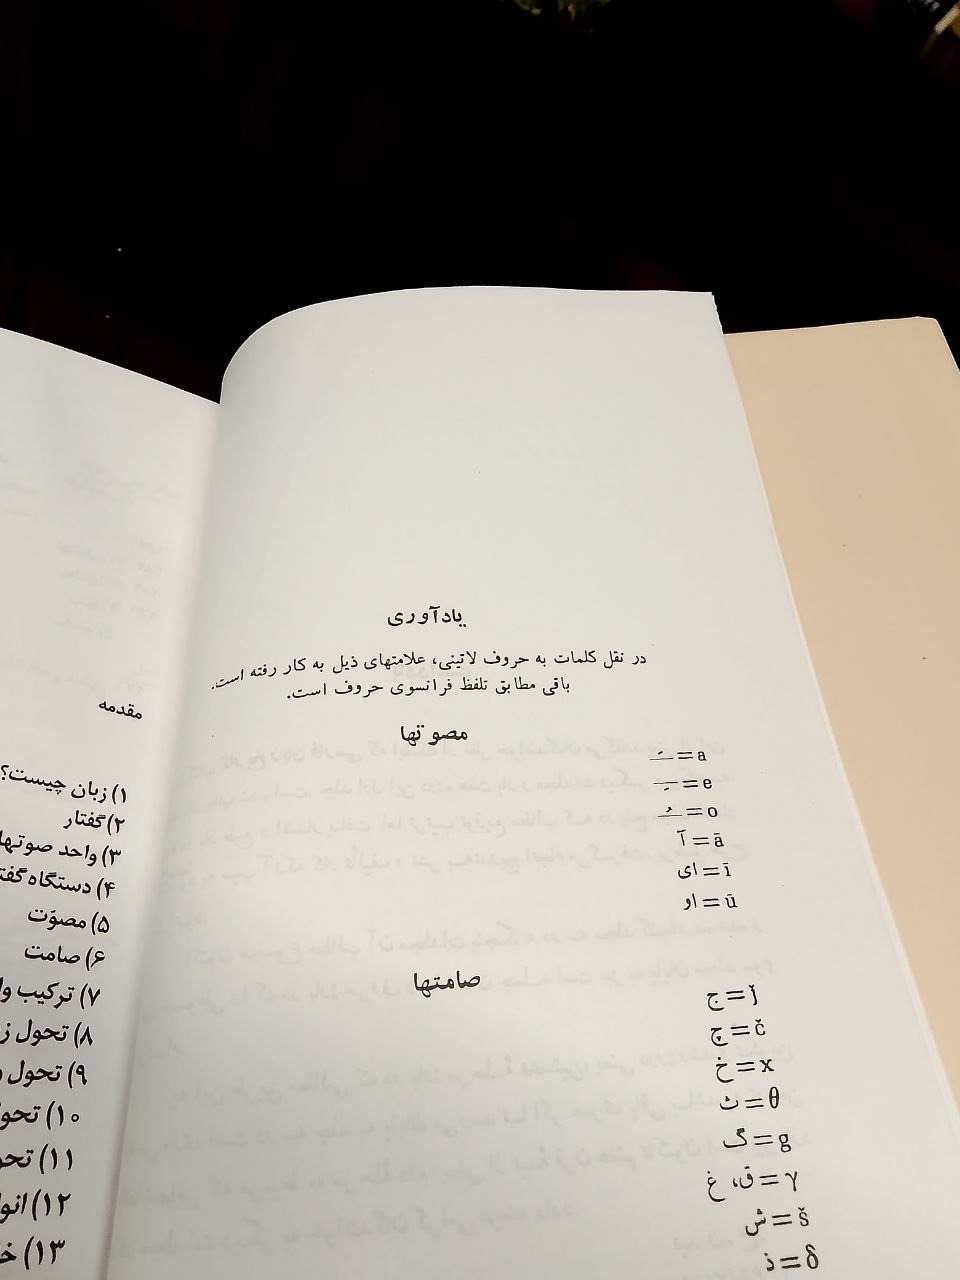 یادآوری
در نقل کلمات به حروف لاتینی، علامتهای ذیل به کار رفته است.
باقی مطابق تلفظ فرانسوی حروف است.
مصوتها
a = ـَـ
e = ـِـ
o = ـُـ
ā = آ
ī = ای
ū = او
صامتها
ǰ = ج
č = چ
x = خ
θ = ث
g = گ
γ = ق، غ
š = ش
δ = ذ
مقدمه
۱) زبان چیست؟
۲) گفتار
۳) واحد صوتها
۴) دستگاه
۵) مصوّت
۶) صامت
۷) ترکیب
۸) تحول
۹) تحول
۱۰)
۱۱)
۱۲)
۱۳)